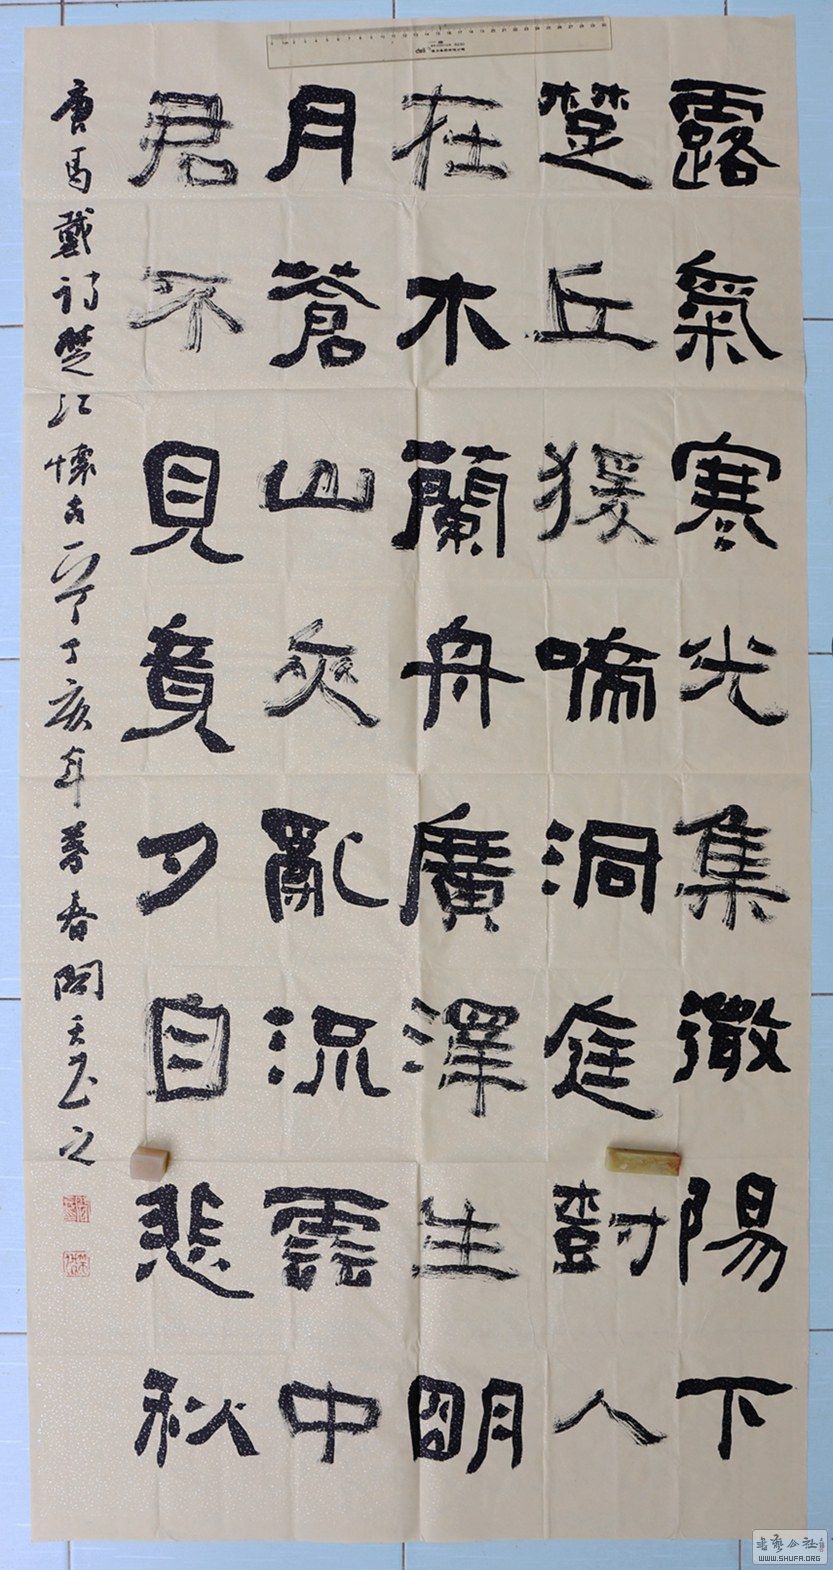 露氣寒光集微陽下
楚丘猨啼洞庭對人
在木蘭舟廣澤生明
月蒼山夾亂流雲中
君不見竟夕自悲秋
唐馬戴詩楚江懷古一首丁亥年暮春天書之
deli
書藝公社
WWW.SHUFA.ORG